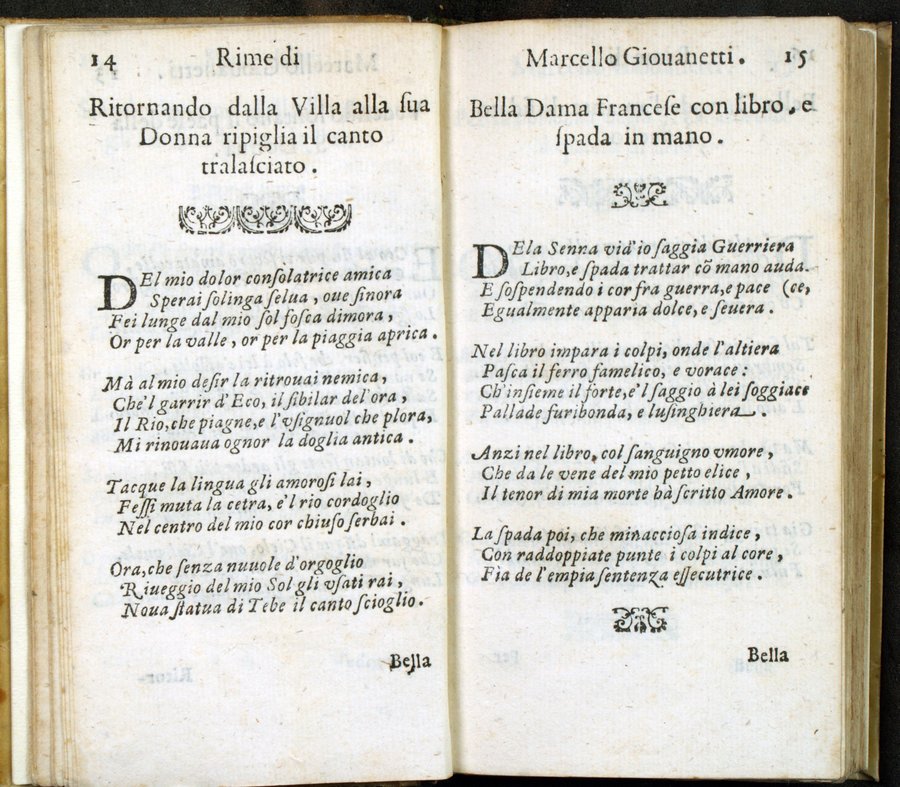 14 Rime di
Ritornando dalla Villa alla ſua
Donna ripiglia il canto
tralaſciato.
DEl mio dolor conſolatrice amica
Sperai ſolinga ſelua, oue ſinora
Fei lunge dal mio ſol foſca dimora,
Or per la valle, or per la piaggia aprica.
Mà al mio deſir la ritrouai nemica,
Che'l garrir d'Eco, il ſibilar del'ora,
Il Rio, che piagne, e l'vſignuol che plora,
Mi rinouaua ognor la doglia antica.
Tacque la lingua gli amoroſi lai,
Feſſi muta la cetra, e'l rio cordoglio
Nel centro del mio cor chiuſo ſerbai.
Ora, che ſenza nuuole d'orgoglio
Riueggio del mio Sol gli vſati rai,
Noua ſtatua di Tebe il canto ſcioglio.
Bella
Marcello Giouanetti. 15
Bella Dama Franceſe con libro, e
ſpada in mano.
DEla Senna vid'io ſaggia Guerriera
Libro, e ſpada trattar cō mano auda-
E ſoſpendendo i cor fra guerra, e pace (ce,
Egualmente apparia dolce, e ſeuera.
Nel libro impara i colpi, onde l'altiera
Paſca il ferro famelico, e vorace:
Ch'inſieme il forte, e'l ſaggio à lei ſoggiace
Pallade furibonda, e luſinghiera.
Anzi nel libro, col ſanguigno vmore,
Che da le vene del mio petto elice,
Il tenor di mia morte hà ſcritto Amore.
La ſpada poi, che minaccioſa indice,
Con raddoppiate punte i colpi al core,
Fia de l'empia ſentenza eſſecutrice.
Bella